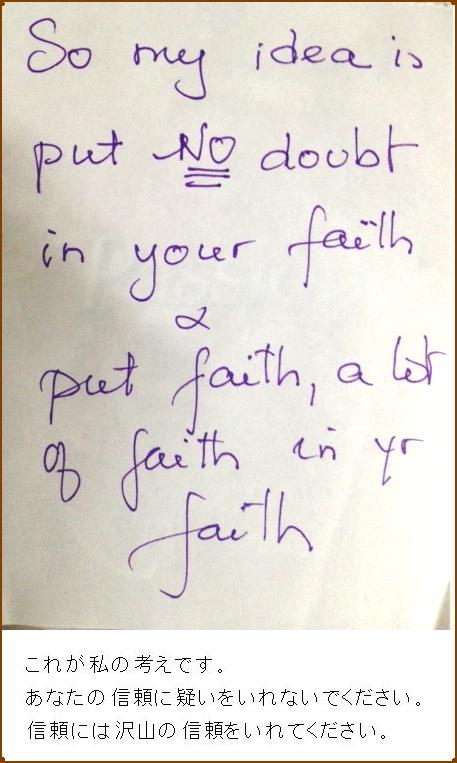 So my idea is
put NO doubt
in your faith
&
put faith, a lot
of faith in yr
faith
これが私の考えです。
あなたの信頼に疑いをいれないでください。
信頼には沢山の信頼をいれてください。